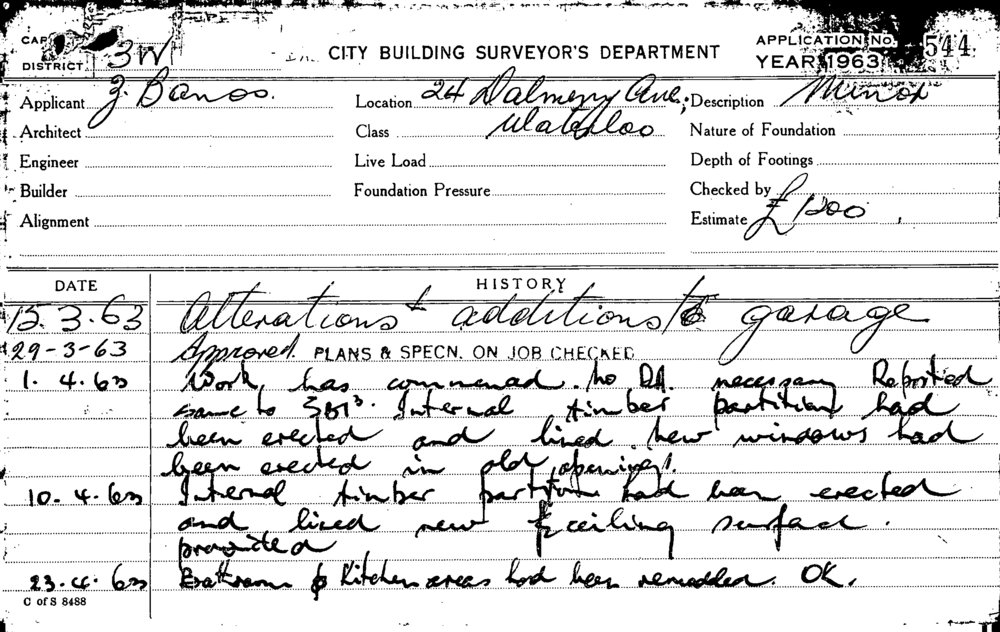 CITY BUILDING SURVEYOR'S DEPARTMENT
APPLICATION No. 544
DISTRICT 3W
YEAR 1963
Applicant Z. Banos.
Location 24 Dalmeny Ave.,
Description Minor
Architect
Class Waterloo
Nature of Foundation
Engineer
Live Load
Depth of Footings
Builder
Foundation Pressure
Checked by
Alignment
Estimate £1200
DATE
HISTORY
15.3.63 Alterations & additions to garage
29-3-63 Approved. PLANS & SPECN. ON JOB CHECKED
1. 4. 63 Work has commenced. No DA. necessary Reported
same to Internal timber partitions had
been erected and lined. New windows had
been erected in old openings.
10. 4. 63 Internal timber partitions had been erected
and lined new ceiling surface.
provided
23. 4. 63 Bathroom & Kitchen areas had been remodelled. OK.
C of S 8488